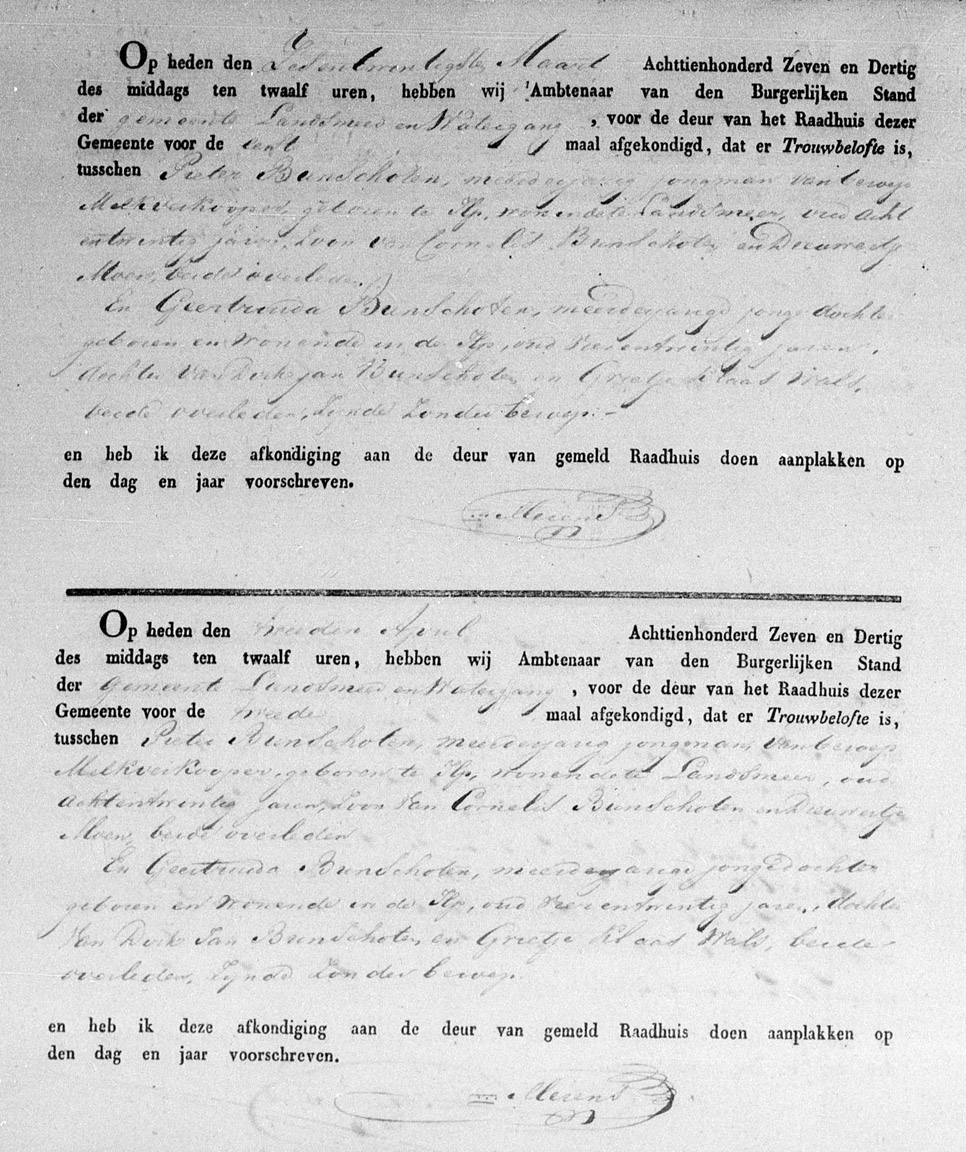 Op heden den Zesentwintigste Maart Achttienhonderd Zeven en Dertig
des middags ten twaalf uren, hebben wij Ambtenaar van den Burgerlijken Stand
der gemeente Landsmeer en Watergang, voor de deur van het Raadhuis dezer
Gemeente voor de eerste maal afgekondigd, dat er Trouwbelofte is,
tusschen Pieter Bunschoten, meerderjarig jongman van beroep
Melkverkooper, geboren te Ilp, wonende te Landsmeer, oud acht
entwintig jaren, Zoon van Cornelis Bunschoten en Dieuwertje
Moer, beide overleden
En Geertruida Bunschoten, meerderjarige jonge dochter
geboren en wonende in de Ilp, oud vier entwintig jaren,
dochter van Dirk Jan Bunschoten en Grietje Klaas Wals,
beide overleden, Zijnde Zonder beroep. –
en heb ik deze afkondiging aan de deur van gemeld Raadhuis doen aanplakken op
den dag en jaar voorschreven.
Op heden den tweeden April Achttienhonderd Zeven en Dertig
des middags ten twaalf uren, hebben wij Ambtenaar van den Burgerlijken Stand
der gemeente Landsmeer en Watergang, voor de deur van het Raadhuis dezer
Gemeente voor de tweede maal afgekondigd, dat er Trouwbelofte is,
tusschen Pieter Bunschoten, meerderjarig jongman, van beroep
Melkverkooper, geboren te Ilp, wonende te Landsmeer, oud
Achtentwintig jaren, Zoon van Cornelis Bunschoten en Dieuwertje
Moer, beide overleden
En Geertruida Bunschoten, meerderjarige jongedochter
geboren en wonende in de Ilp, oud vier entwintig jaren, dochter
van Dirk Jan Bunschoten, en Grietje Klaas Wals, beide
overleden, Zijnde Zonder beroep.
en heb ik deze afkondiging aan de deur van gemeld Raadhuis doen aanplakken op
den dag en jaar voorschreven.